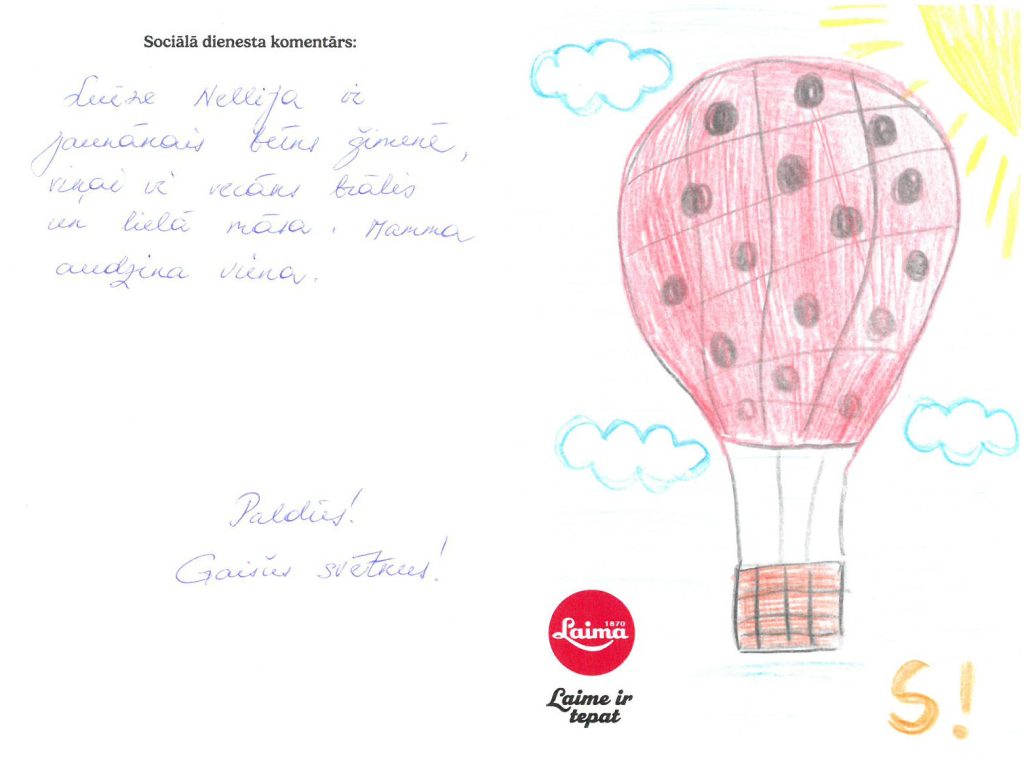 Sociālā dienesta komentārs:
Luīze Nellija ir
jaunākais bērns ģimenē,
viņai ir vecāks brālis
un lielā māsa. Mamma
audzina viena.
Paldies!
Gaišus svētkus!
Laima
1870
Laime ir
tepat
S!